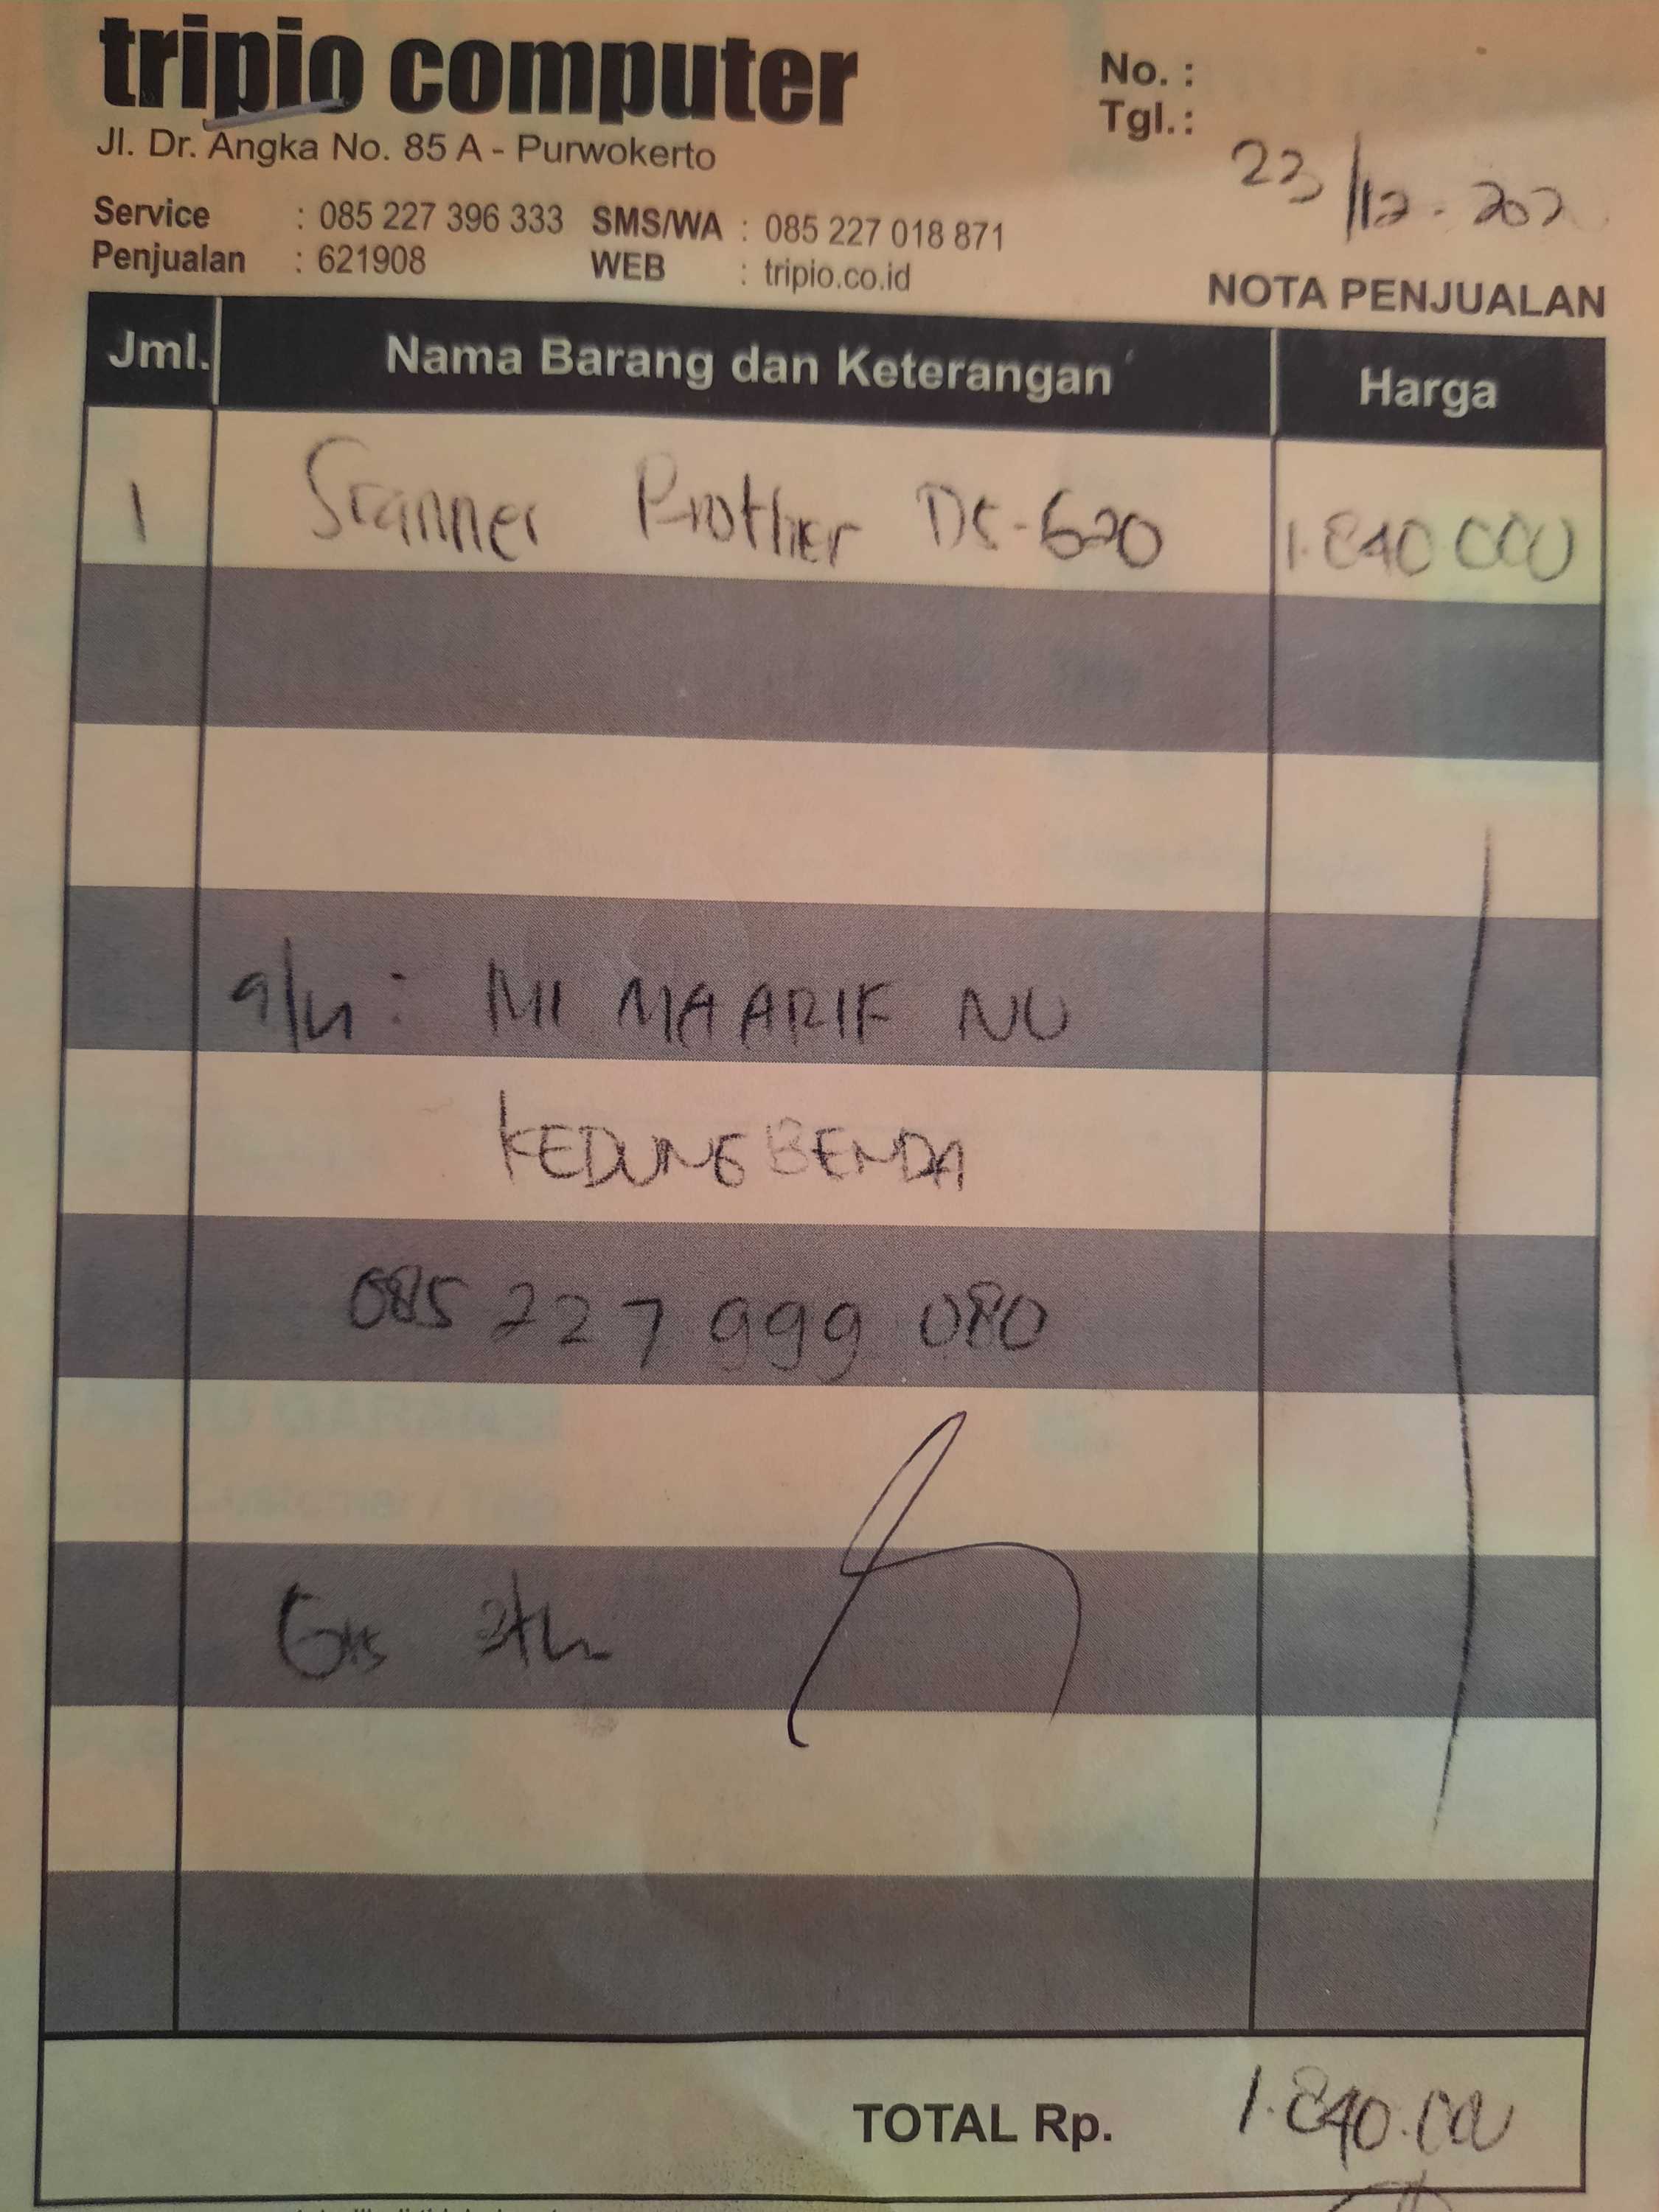 tripio computer
Jl. Dr. Angka No. 85 A - Purwokerto
No. :
Tgl. :
23/12-202
Service : 085 227 396 333 SMS/WA : 085 227 018 871
Penjualan : 621908 WEB : tripio.co.id
NOTA PENJUALAN
Jml. Nama Barang dan Keterangan Harga
1 Scanner Brother DS-620 1.840.000
a/n : MI MAARIF NU
KEDUNGBENDA
085 227 999 080
TOTAL Rp. 1.840.000